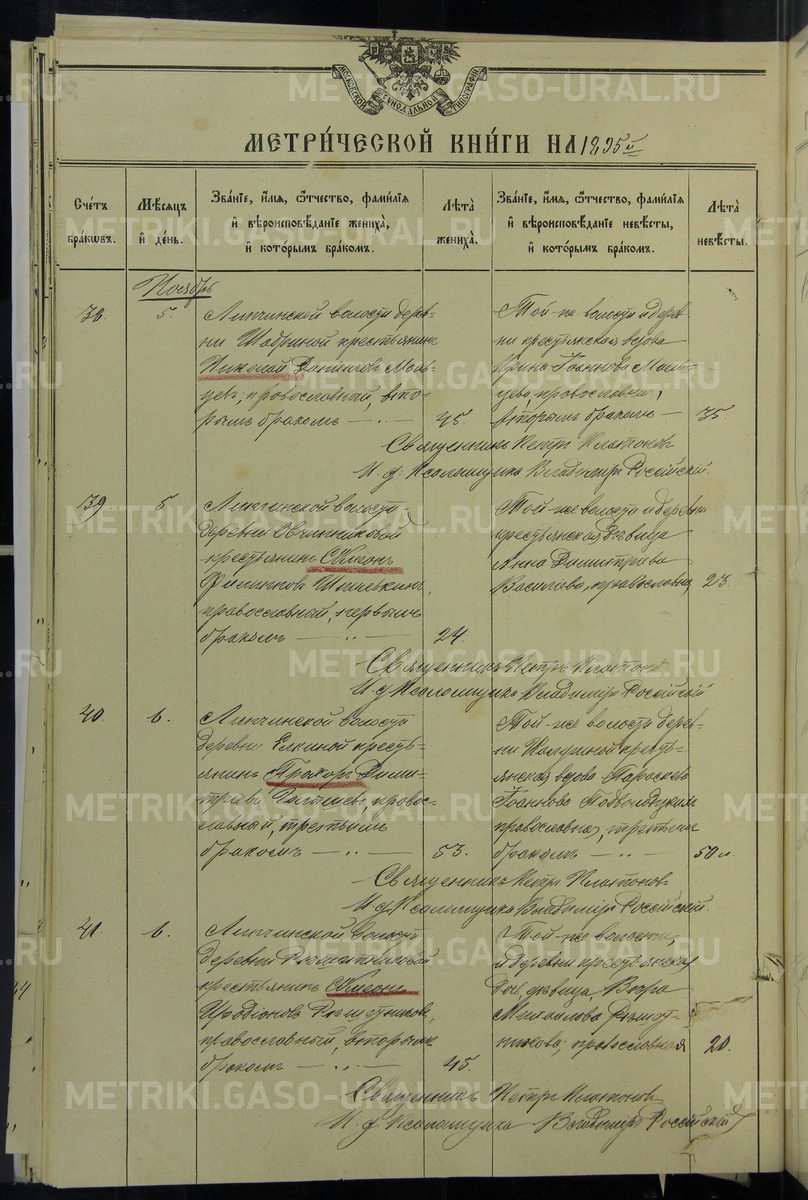 МОСКОВСКОЙ СѴНОДАЛЬНОЙ ТИПОГРАФІИ
МЕТРИ́ЧЕСКОЙ КНИ́ГИ НА 1895 й
Сче́тъ бра́кѡвъ.
Мѣ́сяцъ и҆ де́нь.
Зва́нїе, и҆́мѧ, ѻ҆́тчество, фами́лїѧ и҆ вѣроисповѣ́данїе жениха̀, и҆ кото́рымъ бра́комъ.
Лѣ́та жениха̀.
Зва́нїе, и҆́мѧ, ѻ҆́тчество, фами́лїѧ и҆ вѣроисповѣ́данїе невѣ́сты, и҆ кото́рымъ бра́комъ.
Лѣ́та невѣ́сты.
Ноябрь
38. 5.
Липчинской волости дерев-
ни Шабриной крестьянинъ
Николай Даниловъ Маль-
цевъ, православный, вто-
рымъ бракомъ — 45.
Той-же волости и дерев-
ни крестьянская вдова
Ирина Іоаннова Маль-
цева, православная,
вторымъ бракомъ — 35.
Священникъ Петръ Платоновъ
И. д. Псаломщика Владиміръ Россійскій.
39. 5.
Липчинской волости
деревни Овчинниковой
крестьянинъ Сѵмеонъ
Филипповъ
православный, первымъ
бракомъ — 24
Той-же волости и деревни
крестьянская дѣвица
Анна Димитріева
православная 23.
Священникъ Петръ Платоновъ
И. д. Псаломщика Владиміръ Россійскій
40. 6.
Липчинской волости
деревни Елкиной кресть-
янинъ Прохоръ Дими-
тріевъ правос-
лавный, третьимъ
бракомъ — 53.
Той-же волости дерев-
ни кресть-
янская вдова Параскева
Іоаннова
православная, третьимъ
бракомъ — 50 л.
Священникъ Петръ Платоновъ
И. д. Псаломщика Владиміръ Россійскій.
41. 6.
Липчинской волости
деревни Рѣшетниковой
крестьянинъ Сѵмеонъ
Иродіоновъ Рѣшетниковъ,
православный, вторымъ
бракомъ — 45.
Той-же волости,
и деревни крестьянская
дѣвица Вѣра
Михайлова Рѣшет-
никова, православная 20.
Священникъ Петръ Платоновъ
И. д. Псаломщика Владиміръ Россійскій
METRIKI.GASO-URAL.RU